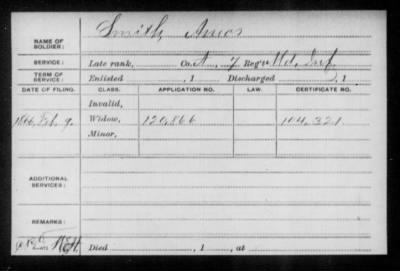 NAME OF SOLDIER: Smith, Amos
SERVICE: Late rank, Co. A, 7 Reg't Md. Inf.
TERM OF SERVICE: Enlisted , 1 Discharged , 1
DATE OF FILING. CLASS. APPLICATION NO. LAW. CERTIFICATE NO.
Invalid,
1866, Feb. 9. Widow, 120,866 104,321
Minor,
ADDITIONAL SERVICES:
REMARKS:
Died , 1 , at